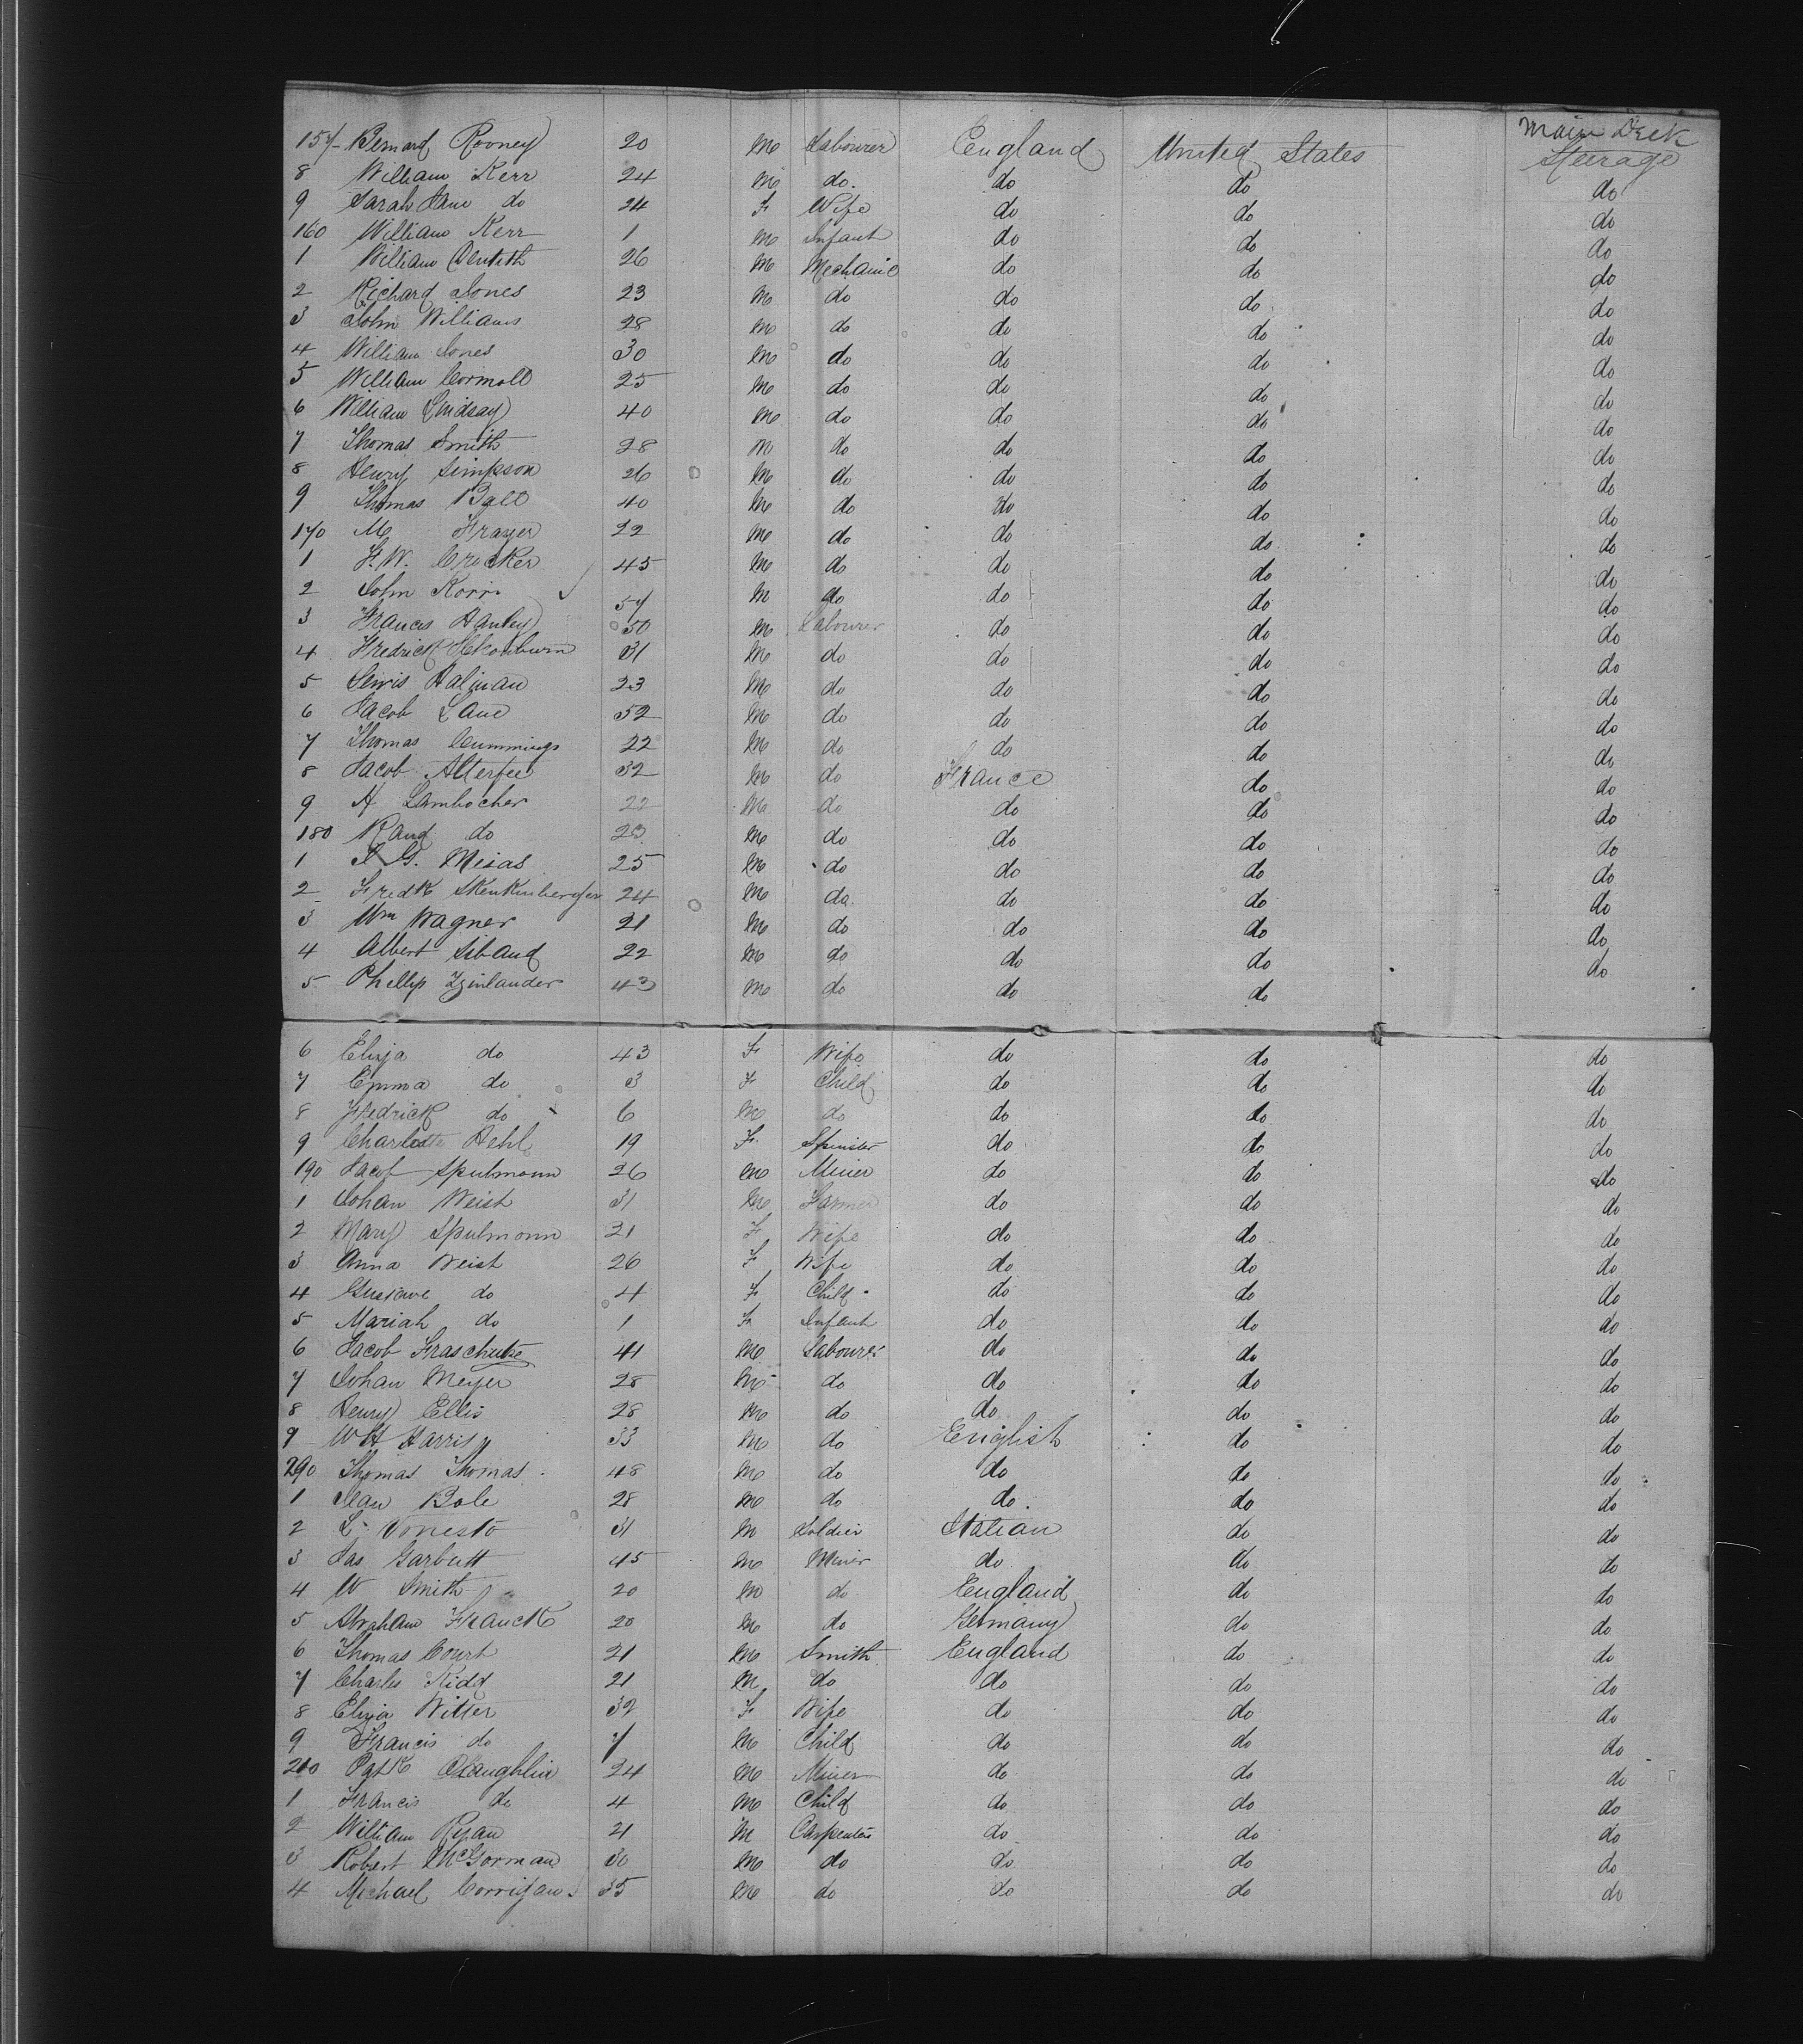 Main Deck
157 Bernard Rooney 20 M Labourer England United States Steerage
8 William Kerr 24 M do. do do do
9 Sarah Jane do 24 F Wife do do do
160 William Kerr 1 M Infant do do do
1 William 26 M Mechanic do do do
2 Richard Jones 23 M do do do do
3 John Williams 28 M do do do do
4 William Jones 30 M do do do do
5 William Cormall 25 M do do do do
6 William Lindsay 40 M do do do do
7 Thomas Smith 28 M do do do do
8 Henry Simpson 26 M do do do do
9 Thomas 40 M do do do do
170 M Frayer 22 M do do do do
1 F. W. Crocker 45 M do do do do
2 John 57 M do do do do
3 Francis Hanley 50 M Labourer do do do
4 Fredrick 31 M do do do do
5 Lewis Halman 23 M do do do do
6 Jacob Lane 52 M do do do do
7 Thomas Cummings 22 M do do do do
8 Jacob Alterfee 32 M do France do do
9 H Lambocher 22 M do do do do
180 Rand do 23 M do do do do
1 G. Meias 25 M do do do do
2 Fredk Skenkenberger 24 M do. do do do
3 Wm Wagner 21 M do do do do
4 Albert Siband 22 M do do do do
5 Phillip Zginlander 43 M do do do
6 Eliza do 43 F Wife do do do
7 Emma do 3 F Child do do do
8 Fredrick do 6 M do do do do
9 Charlotte Hehl 19 F. Spinster do do do
190 Jacob Spulmonn 26 M Miner do do do
1 Johan Weist 31 M Farmer do do do
2 Mary Spulmonn 21 F Wife do do do
3 Anna Weist 26 F Wife do do do
4 Gustave do 4 F Child do do do
5 Mariah do 1 F Infant do do do
6 Jacob Fraschutze 41 M Labourer do do do
7 Johan Meyer 28 M do do do do
8 Henry Ellis 28 M do do do do
9 W H Harris 33 M do English do do
290 Thomas Thomas 48 M do do do do
1 Jean Bole 28 M do do. do do
2 L Vonesto 31 M Soldier Italian do do
3 Jas Garbutt 45 M Miner do do do
4 W Smith 20 M do England do do
5 Abraham Franck 20 M do Germany do do
6 Thomas Court 21 M Smith England do do
7 Charles Kidd 21 M do do do do
8 Eliza Witter 32 F Wife do do do
9 Francis do 7 M Child do do do
200 Patk OLaughlin 24 M Miner do do do
1 Francis do 4 M Child do do do
2 William Ryan 21 M Carpenter do do do
3 Robert McGorman 30 M do do do do
4 Michael Corrigan 35 M do do do do